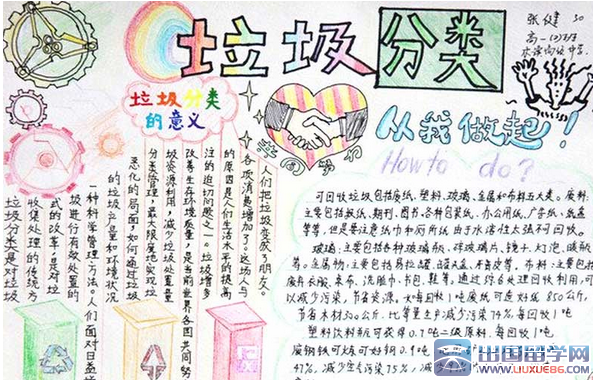 垃圾分类
张健 30
高一(2)班
从我做起!
垃圾分类
的意义
共同努力
How to do?
垃圾分类是对垃圾
收集处理的传统方
式的改革,是对垃
圾进行有效处置的
一种科学管理方法。人们面对日益增
的垃圾产量和环境状况
恶化的局面,如何通过垃圾
分类管理,最大限度地实现垃
圾资源利用,减少垃圾处置量
改善生存环境质量,是当前世界各国共同
注的迫切问题之一。垃圾增多
的原因是人们生活水平的提高
各项消费增加了。这场人与
人们把垃圾变成了朋友。
可回收垃圾包括废纸、塑料、玻璃、金属和布料五大类。废纸:
主要包括报纸、期刊、图书、各种包装纸、办公用纸、广告纸、纸盒
等等,但是要注意纸巾和厕所纸由于水溶性太强不可回收。
玻璃:主要包括各种玻璃瓶、碎玻璃片、镜子、灯泡、暖瓶
等。金属物:主要包括易拉罐、罐头盒、牙膏皮等。布料:主要包括
废弃衣服、桌布、洗脸巾、书包、鞋等。通过综合处理回收利用,可
以减少污染,节省资源。如每回收1吨废纸可造好纸850公斤,
节省木材300公斤,比等量生产减少污染74%,每回收1吨
塑料饮料瓶可获得0.7吨二级原料,每回收1吨
废钢铁可炼好钢0.9吨
47%,减少空气污染75%,
出国留学网
www.liuxue86.com